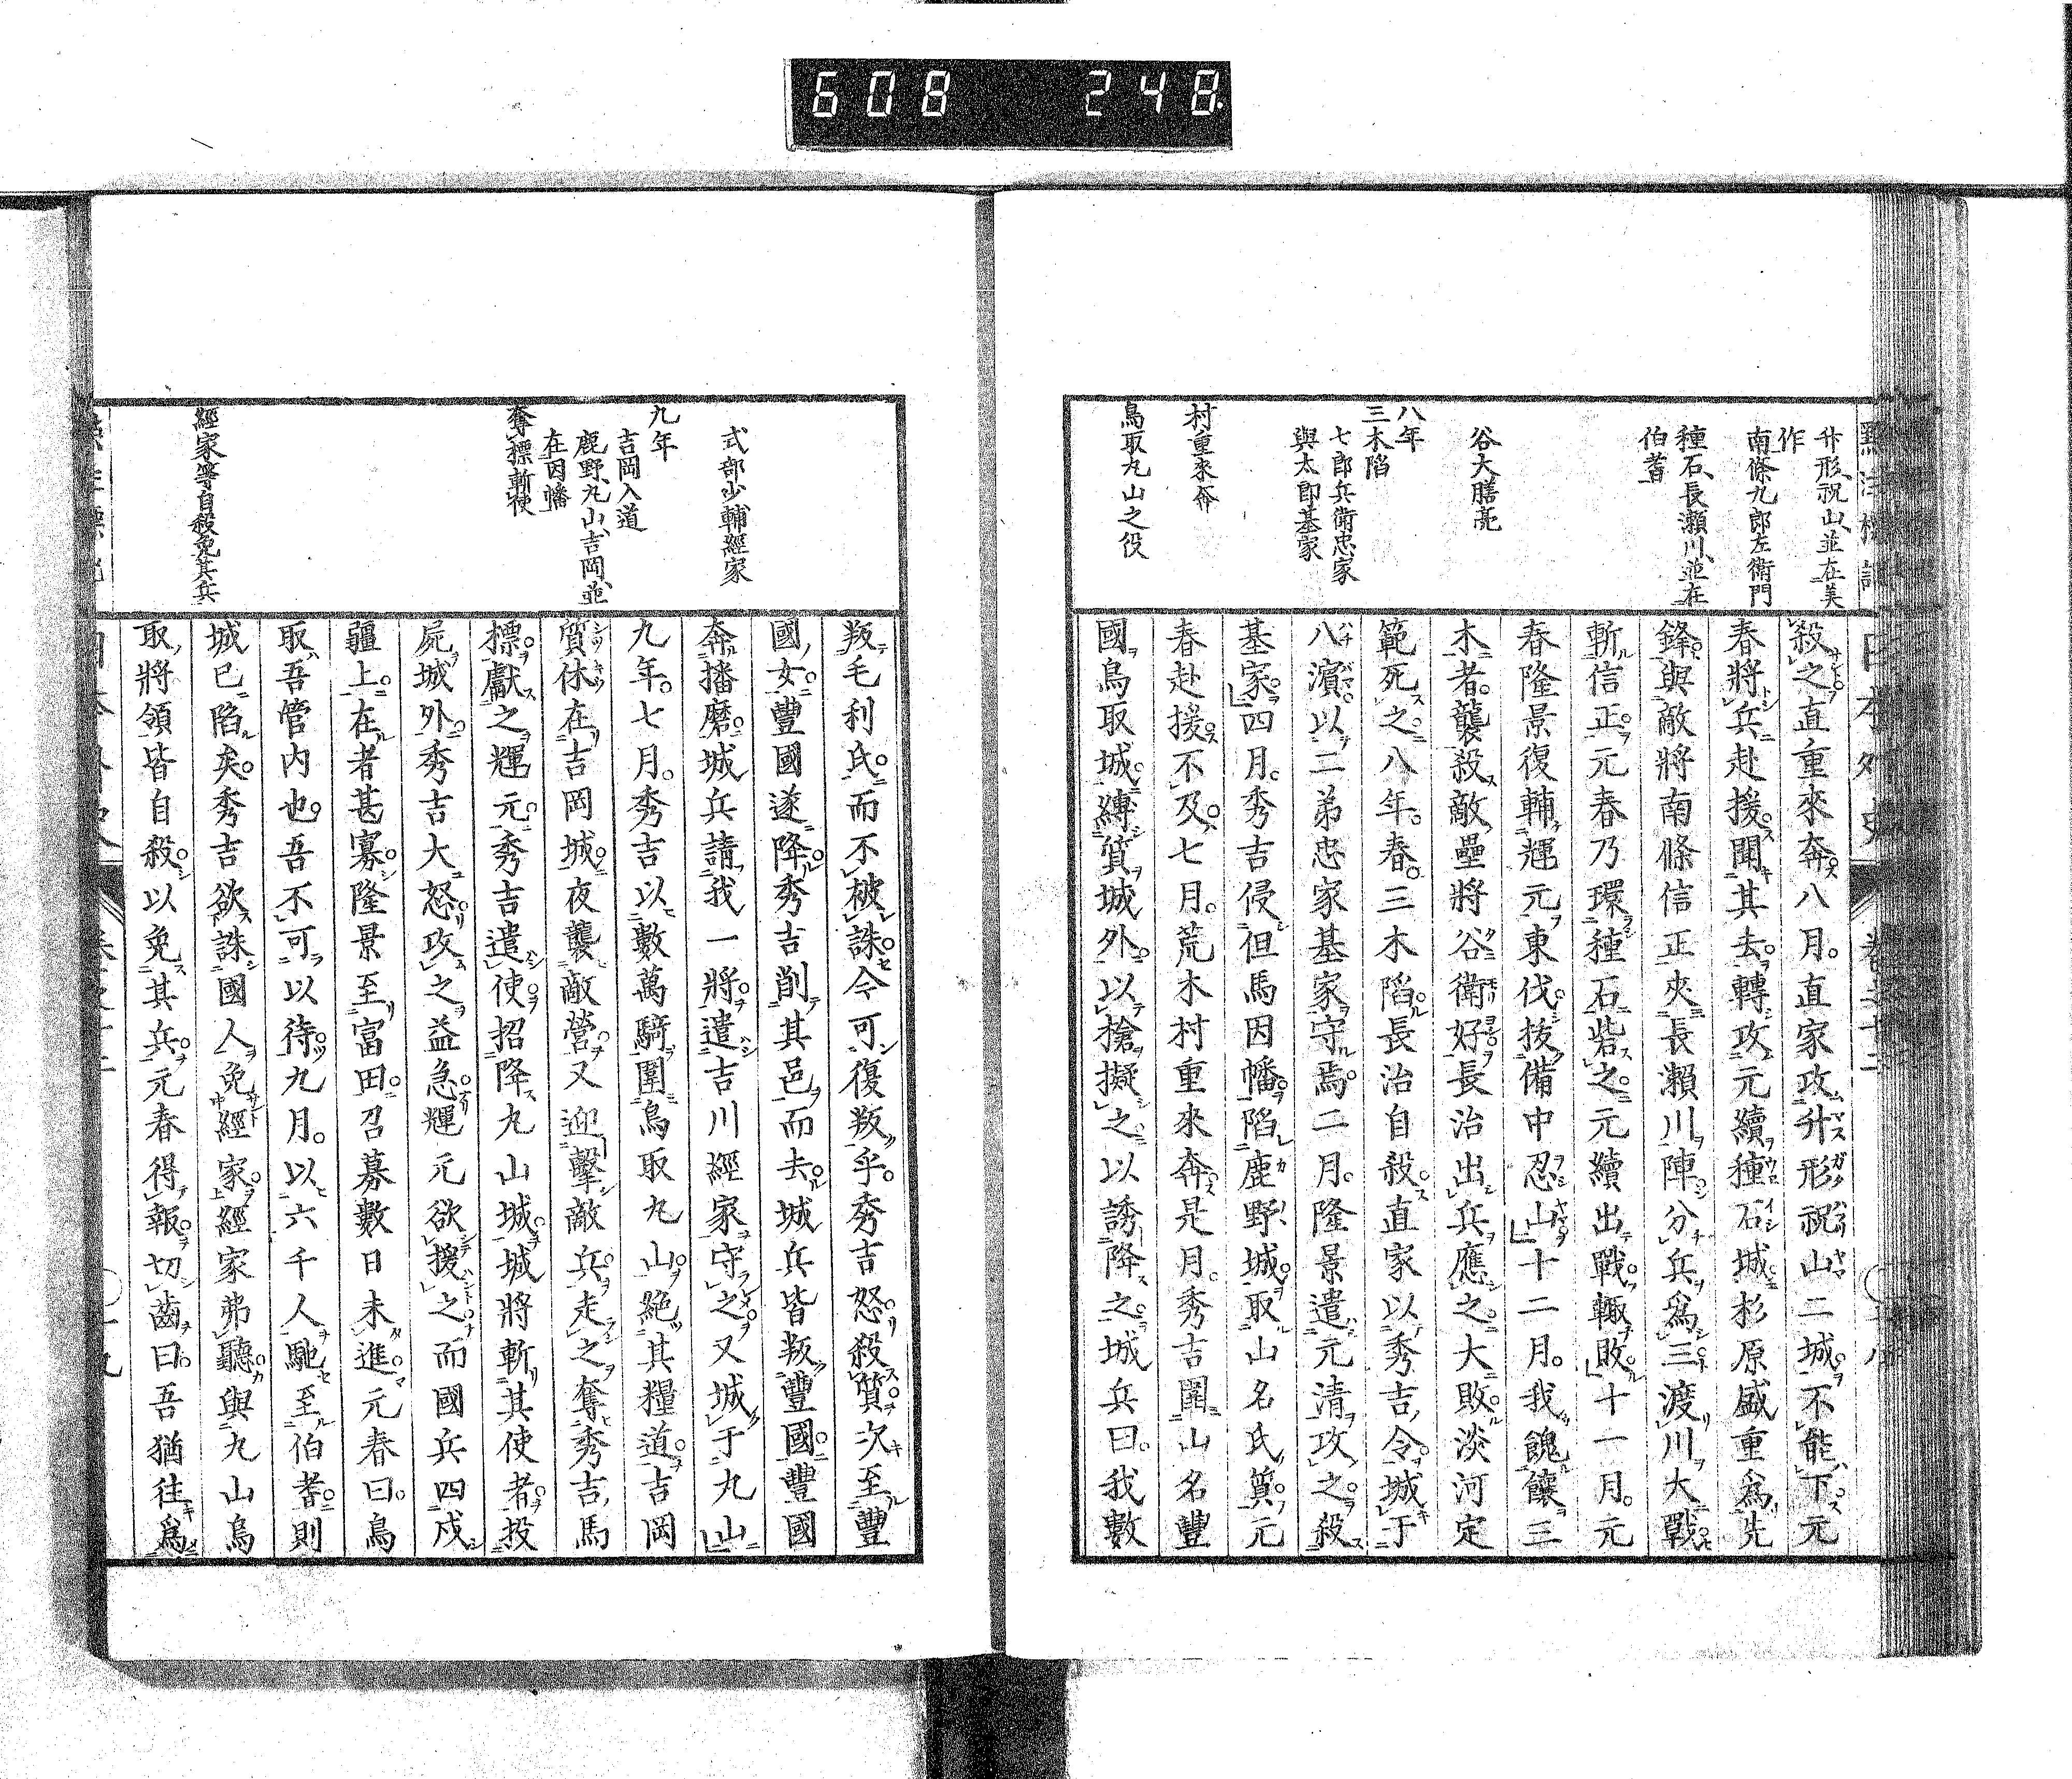 608 248.
升形、祝山、並在美
作
南條九郎左衞門
種石、長瀨川、並在
伯耆
谷大膳亮
八年
三木陷
七郎兵衞忠家
與太郎基家
村重來奔
鳥取丸山之役
殺之直重來奔八月直家攻升形祝山二城不能下元
春將兵赴援聞其去轉攻元續種石城杉原盛重爲先
鋒與敵將南條信正夾長瀨川陣分兵爲三渡川大戰
斬信正元春乃環種石砦之元續出戰輙敗十一月元
春隆景復輔輝元東伐拔備中忍山十二月我餽饟三
木者襲殺敵壘將谷衞好長治出兵應之大敗淡河定
範死之八年春三木陷長治自殺直家以秀吉令城于
八濱以二弟忠家基家守焉二月隆景遣元清攻之殺
基家四月秀吉侵但馬因幡陷鹿野城取山名氏質元
春赴援不及七月荒木村重來奔是月秀吉圍山名豐
國鳥取城縛質城外以槍擬之以誘降之城兵曰我數
式部少輔經家
九年
吉岡入道
鹿野、丸山、吉岡、並
在因幡
奪標斬使
經家等自殺免其兵
叛毛利氏而不被誅今可復叛乎秀吉怒殺質次至豐
國女豐國遂降秀吉削其邑而去城兵皆叛豐國豐國
奔播磨城兵請我一將遣吉川經家守之又城于丸山
九年七月秀吉以數萬騎圍鳥取丸山絕其糧道吉岡
質休在吉岡城夜襲敵營又迎擊敵兵走之奪秀吉馬
標獻之輝元秀吉遣使招降丸山城城將斬其使者投
屍城外秀吉大怒攻之益急輝元欲援之而國兵四戍
疆上在者甚寡隆景至富田召募數日未進元春曰鳥
取吾管内也吾不可以待九月以六千人馳至伯耆則
城已陷矣秀吉欲誅國人免經家經家弗聽與丸山鳥
取將領皆自殺以免其兵元春得報切齒曰吾猶往爲